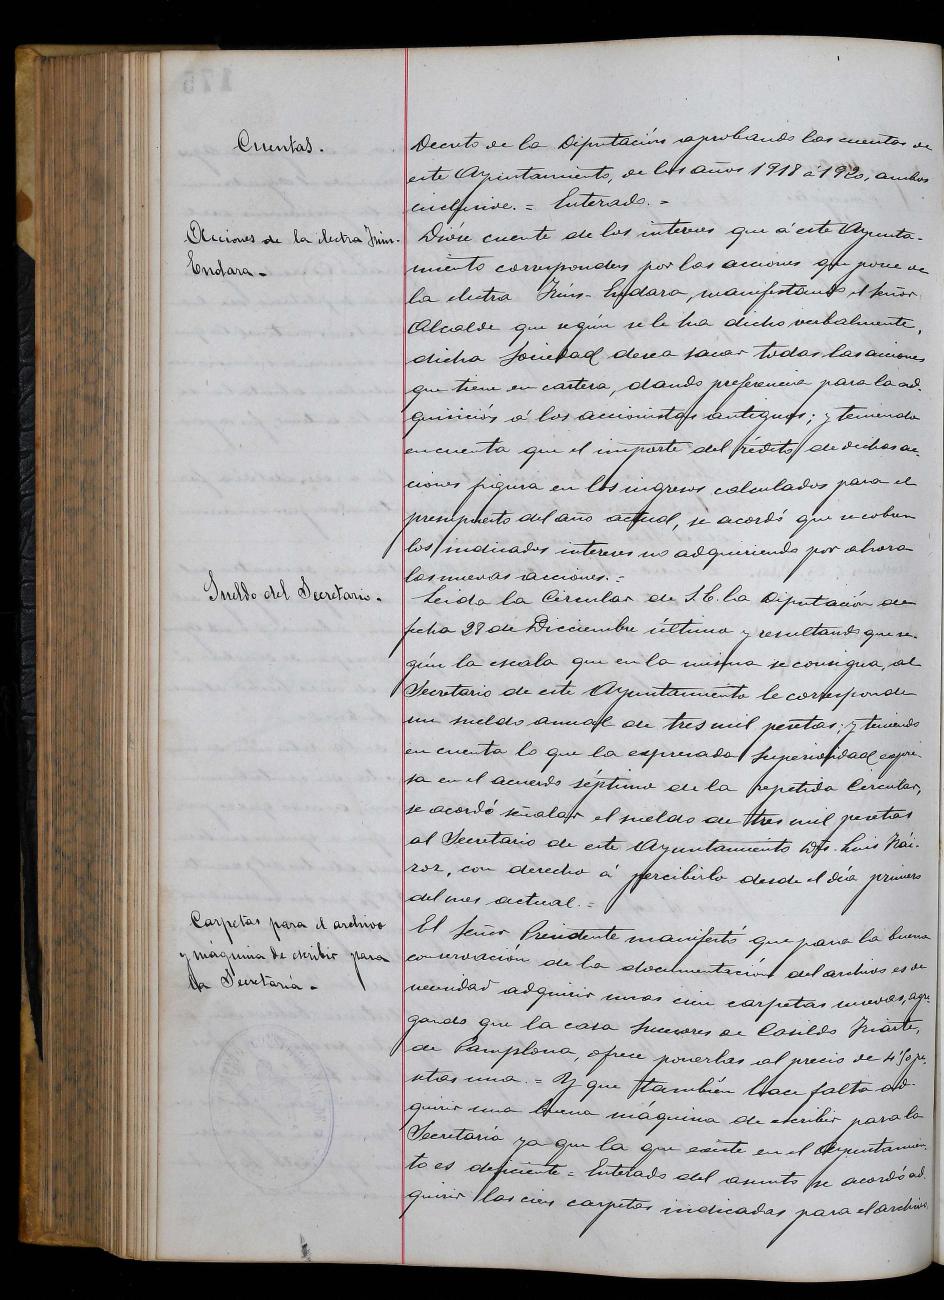 Cuentas.
Decreto de la Diputación aprobando las cuentas de
este Ayuntamiento, de los años 1918 á 1920, ambos
inclusive. = Enterado. =
Acciones de la electra Irún-
Endara.-
Dióse cuenta de los intereses que á este Ayunta-
miento corresponden por las acciones que posee de
la electra Irún-Endara, manifestando el Señor
Alcalde que según se le ha dicho verbalmente,
dicha Sociedad desea sacar todas las acciones
que tiene en cartera, dando preferencia para la ad-
quisición á los accionistas antiguos; y teniendo
en cuenta que el importe del rédito de dichas ac-
ciones figura en los ingresos calculados para el
presupuesto del año actual, se acordó que se cobren
los indicados intereses no adquiriendo por ahora
las nuevas acciones. =
Sueldo del Secretario.
Leida la Circular de S.E. la Diputación de
fecha 28 de Dicciembre último y resultando que se-
gún la escala que en la misma se consigna, al
Secretario de este Ayuntamiento le corresponde
un sueldo anual de tres mil pesetas; y teniendo
en cuenta lo que la expresada Superioridad expre-
sa en el acuerdo séptimo de la repetida Circular,
se acordó señalar el sueldo de tres mil pesetas
al Secretario de este Ayuntamiento Dn. Luis
con derecho á percibirlo desde el día primero
del mes actual. =
Carpetas para el archivo
y máquina de escribir para
la Secretaría.-
El Señor Presidente manifestó que para la buena
conservación de la documentación del archivo es de
necesidad adquirir unas cien carpetas nuevas, agre-
gando que la casa Sucesores de Casildo Iriarte,
de Pamplona, ofrece ponerlas al precio de 4'50 pe-
setas una. = Y que también hace falta ad-
quirir una buena máquina de escribir para la
Secretaría ya que la que existe en el Ayuntamien-
to es deficiente = Enterado del asunto se acordó ad-
quirir las cien carpetas indicadas para el archivo